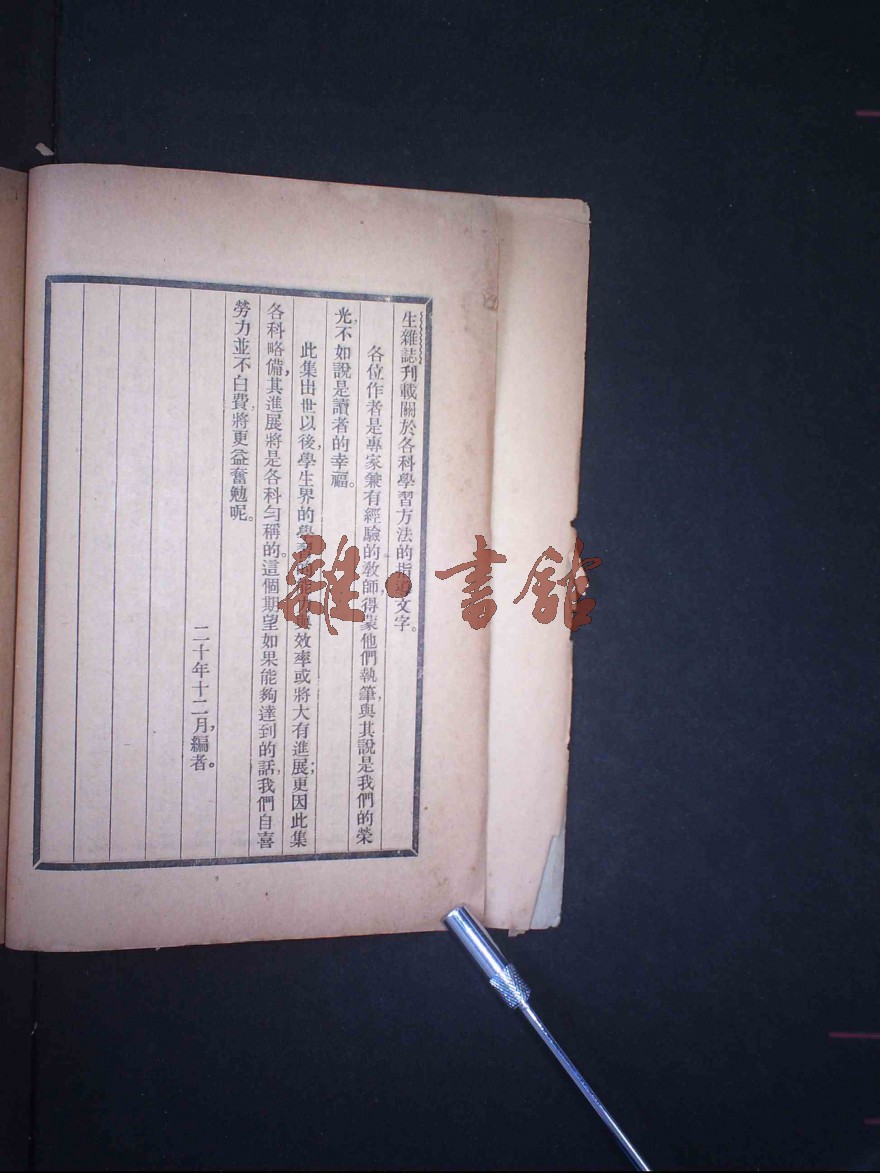 生雜誌刊載關於各科學習方法的指導文字。
各位作者是專家兼有經驗的敎師，得蒙他們執筆，與其說是我們的榮
光，不如說是讀者的幸福。
此集出世以後，學生界的學習的能力與效率或將大有進展；更因此集
各科略備，其進展將是各科勻稱的。這個期望如果能夠達到的話，我們自喜
勞力並不白費，將更益奮勉呢。
二十年十二月，編者。
雜·書館